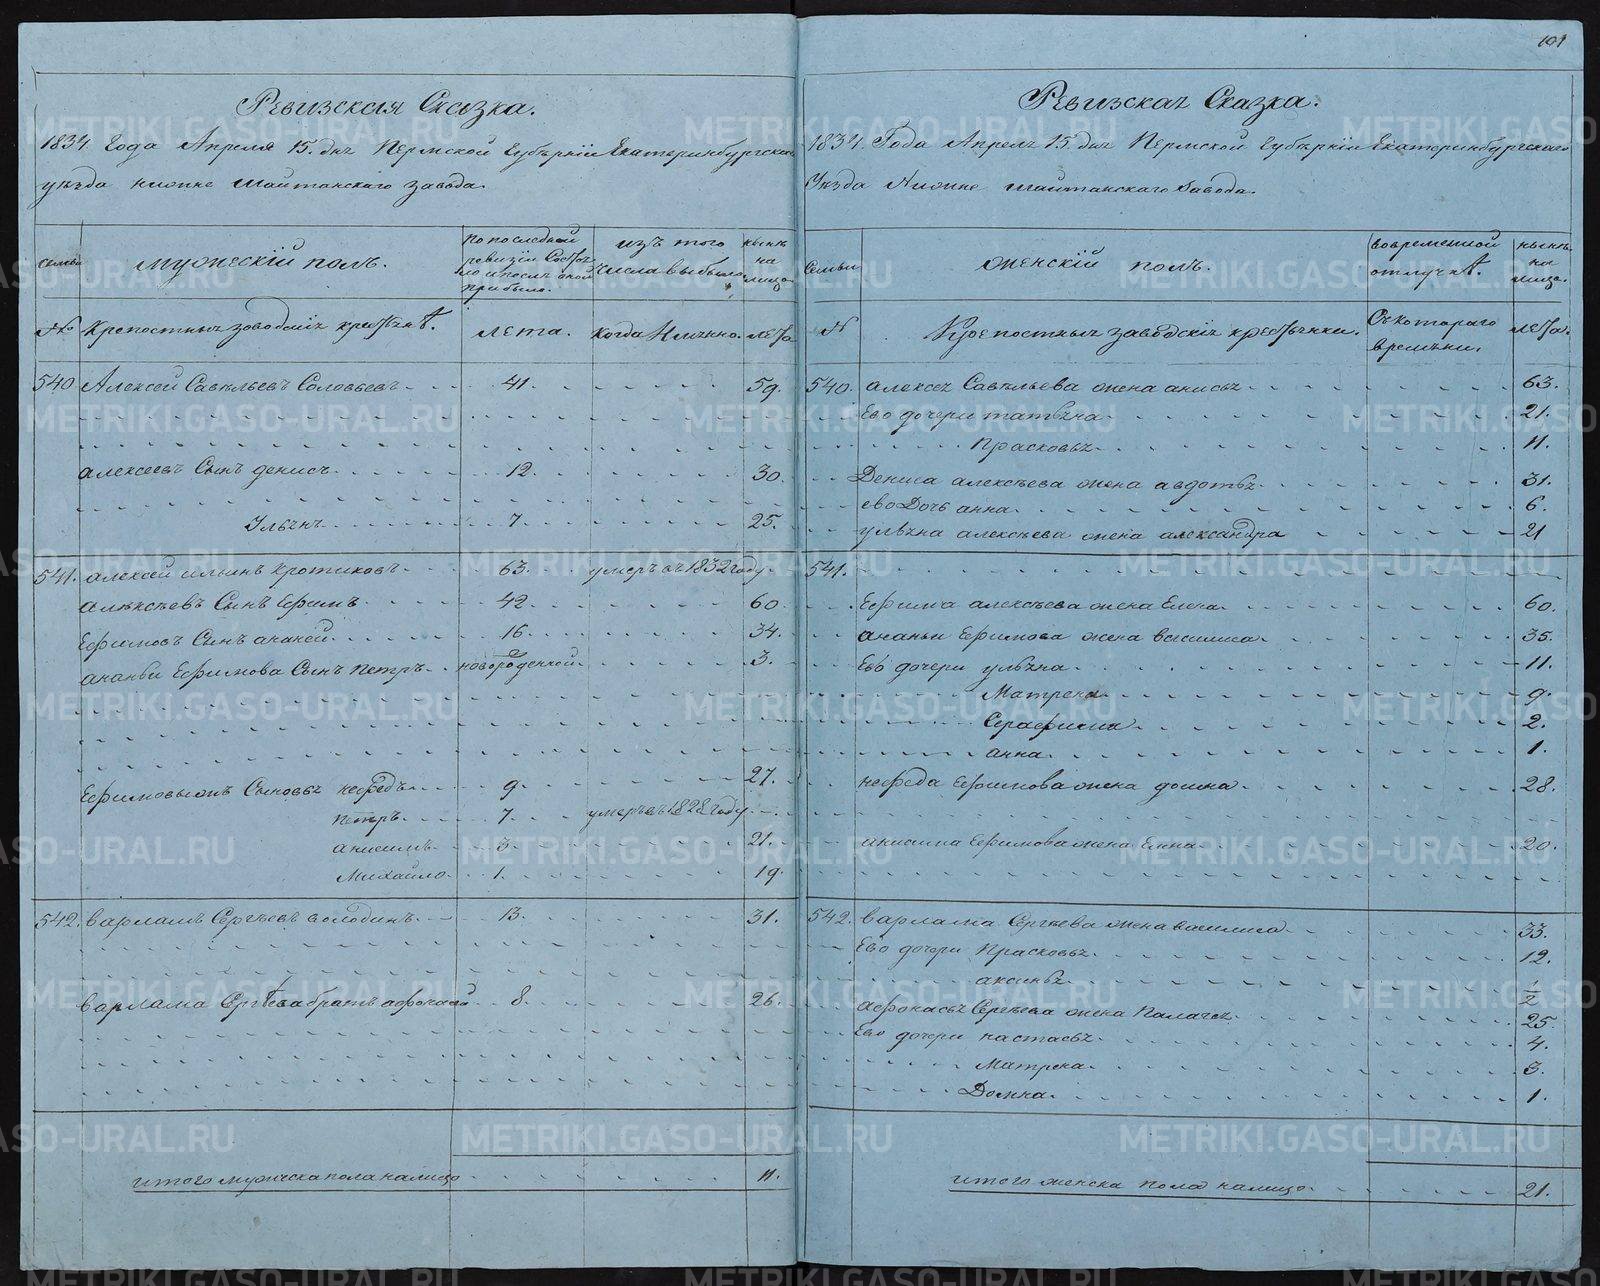 101
Ревизская Сказка.
1834. года Апреля 15. дня Пермской Губѣрніи Екатеринбургскаго
уѣзда нижне шайтанскаго завода.
семьи
мужескій полъ.
по последней ревизіи Состояло и после оной прибыло.
изъ того числа выбыло.
нынѣ на лицо.
№
крепостныхъ заводскихъ крестьянъ.
лета.
когда Имянно.
лета
540 Алексей Савѣльевъ Соловьевъ 41. 59.
алексеевъ Сынъ денисъ 12. 30.
Ульянъ 7. 25.
541. алексей ильинъ кротиковъ 63. умеръ въ 1832 году.
алексѣевъ Сынъ Ефимъ 42 60
Ефимовъ Сынъ ананей 16. 34.
ананьи Ефимова Сынъ петръ новорожденной 3.
Ефимовыхъ Сыновья нефедъ 9. 27.
петръ 7. умеръ въ 1828 году
анисимъ 3. 21.
Михайло 1. 19
542. варламъ Сергѣевъ володинъ 13. 31.
варлама Сергѣева братъ афонасей 8. 26.
итого мужеска пола налицо 11.
Ревизская Сказка.
1834. Года Апреля 15. дня Пермской Губѣрніи Екатеринбургскаго
Уѣзда Нижне шайтанскаго Завода.
Семьи
женскій полъ.
во временной отлучкѣ.
нынѣ на лицо.
№
Крепостныхъ заводскихъ крестьянки.
Съ котораго времѣни.
лета.
540. алексея Савѣльева жена анисья 63.
Ево дочери татьяна 21.
Прасковья 11.
Дениса алексѣева жена авдотья 31.
ево Дочь анна 6.
ульяна алексѣева жена александра 21
541.
Ефима алексѣева жена Елена 60.
ананьи Ефимова жена василиса 35.
Ево дочери ульяна 11.
Матрена 9.
Серафима 2.
анна 1.
нефеда Ефимова жена домна 28.
анисима Ефимова жена Анна 20.
542. варлама Сергѣева жена василиса 33.
Ево дочери Прасковья 12.
аксинья 1/2
афонасья Сергѣева жена Палагея 25
Ево дочери настасья 4.
Матрена 3.
Домна 1.
итого женска пола налицо 21.
METRIKI.GASO-URAL.RU